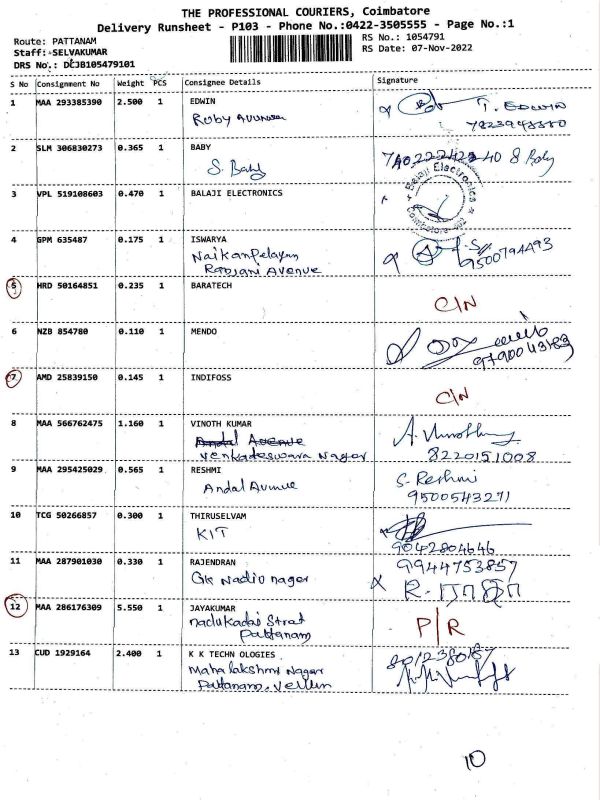 THE PROFESSIONAL COURIERS, Coimbatore
Delivery Runsheet - P103 - Phone No.:0422-3505555 - Page No.:1
Route: PATTANAM
RS No.: 1054791
Staff: SELVAKUMAR
RS Date: 07-Nov-2022
DRS No.: DCJB105479101
S No Consignment No Weight PCS Consignee Details Signature
1 MAA 293385390 2.500 1 EDWIN
Ruby T. EDWIN
2 SLM 306830273 0.365 1 BABY
S. Baby
3 VPL 519108603 0.470 1 BALAJI ELECTRONICS
Balaji Electronics
Coimbatore
4 GPM 635487 0.175 1 ISWARYA
Avenue 9500794493
5 HRD 50164851 0.235 1 BARATECH
C/N
6 NZB 854780 0.110 1 MENDO
7 AMD 25839150 0.145 1 INDIFOSS
C/N
8 MAA 566762475 1.160 1 VINOTH KUMAR
Andal Avenue
Venkadeswara Nagar 8220151008
9 MAA 295425029 0.565 1 RESHMI S. Reshmi
Andal Avunue 9500543271
10 TCG 50266857 0.300 1 THIRUSELVAM
KIT
9042804646
11 MAA 287901030 0.330 1 RAJENDRAN 9944753857
GK Nadiu nagar
12 MAA 286176309 5.550 1 JAYAKUMAR
nadukadai Strat P/R
Pattanam
13 CUD 1929164 2.400 1 K K TECHN OLOGIES
Mahalakshmi Nagar
Pattanam,
10